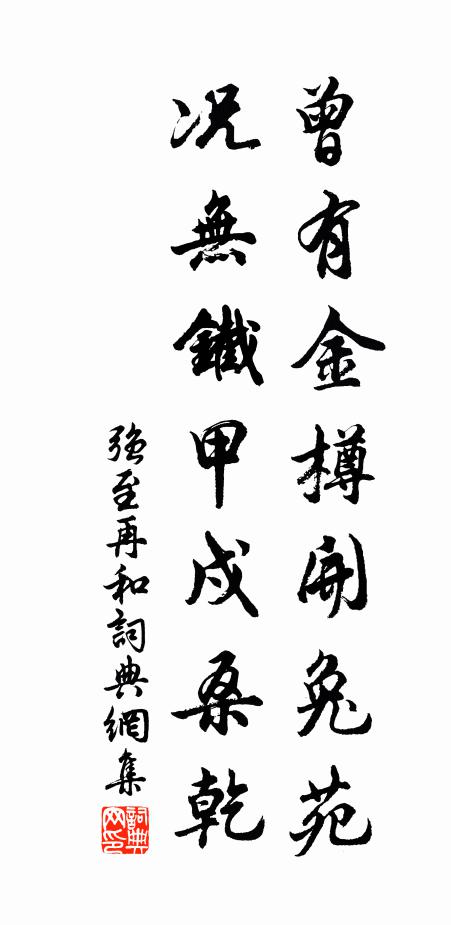 曾有金樽開兔苑
况無鐵甲戍桑乾
強至再和詞典網集
詞典网印